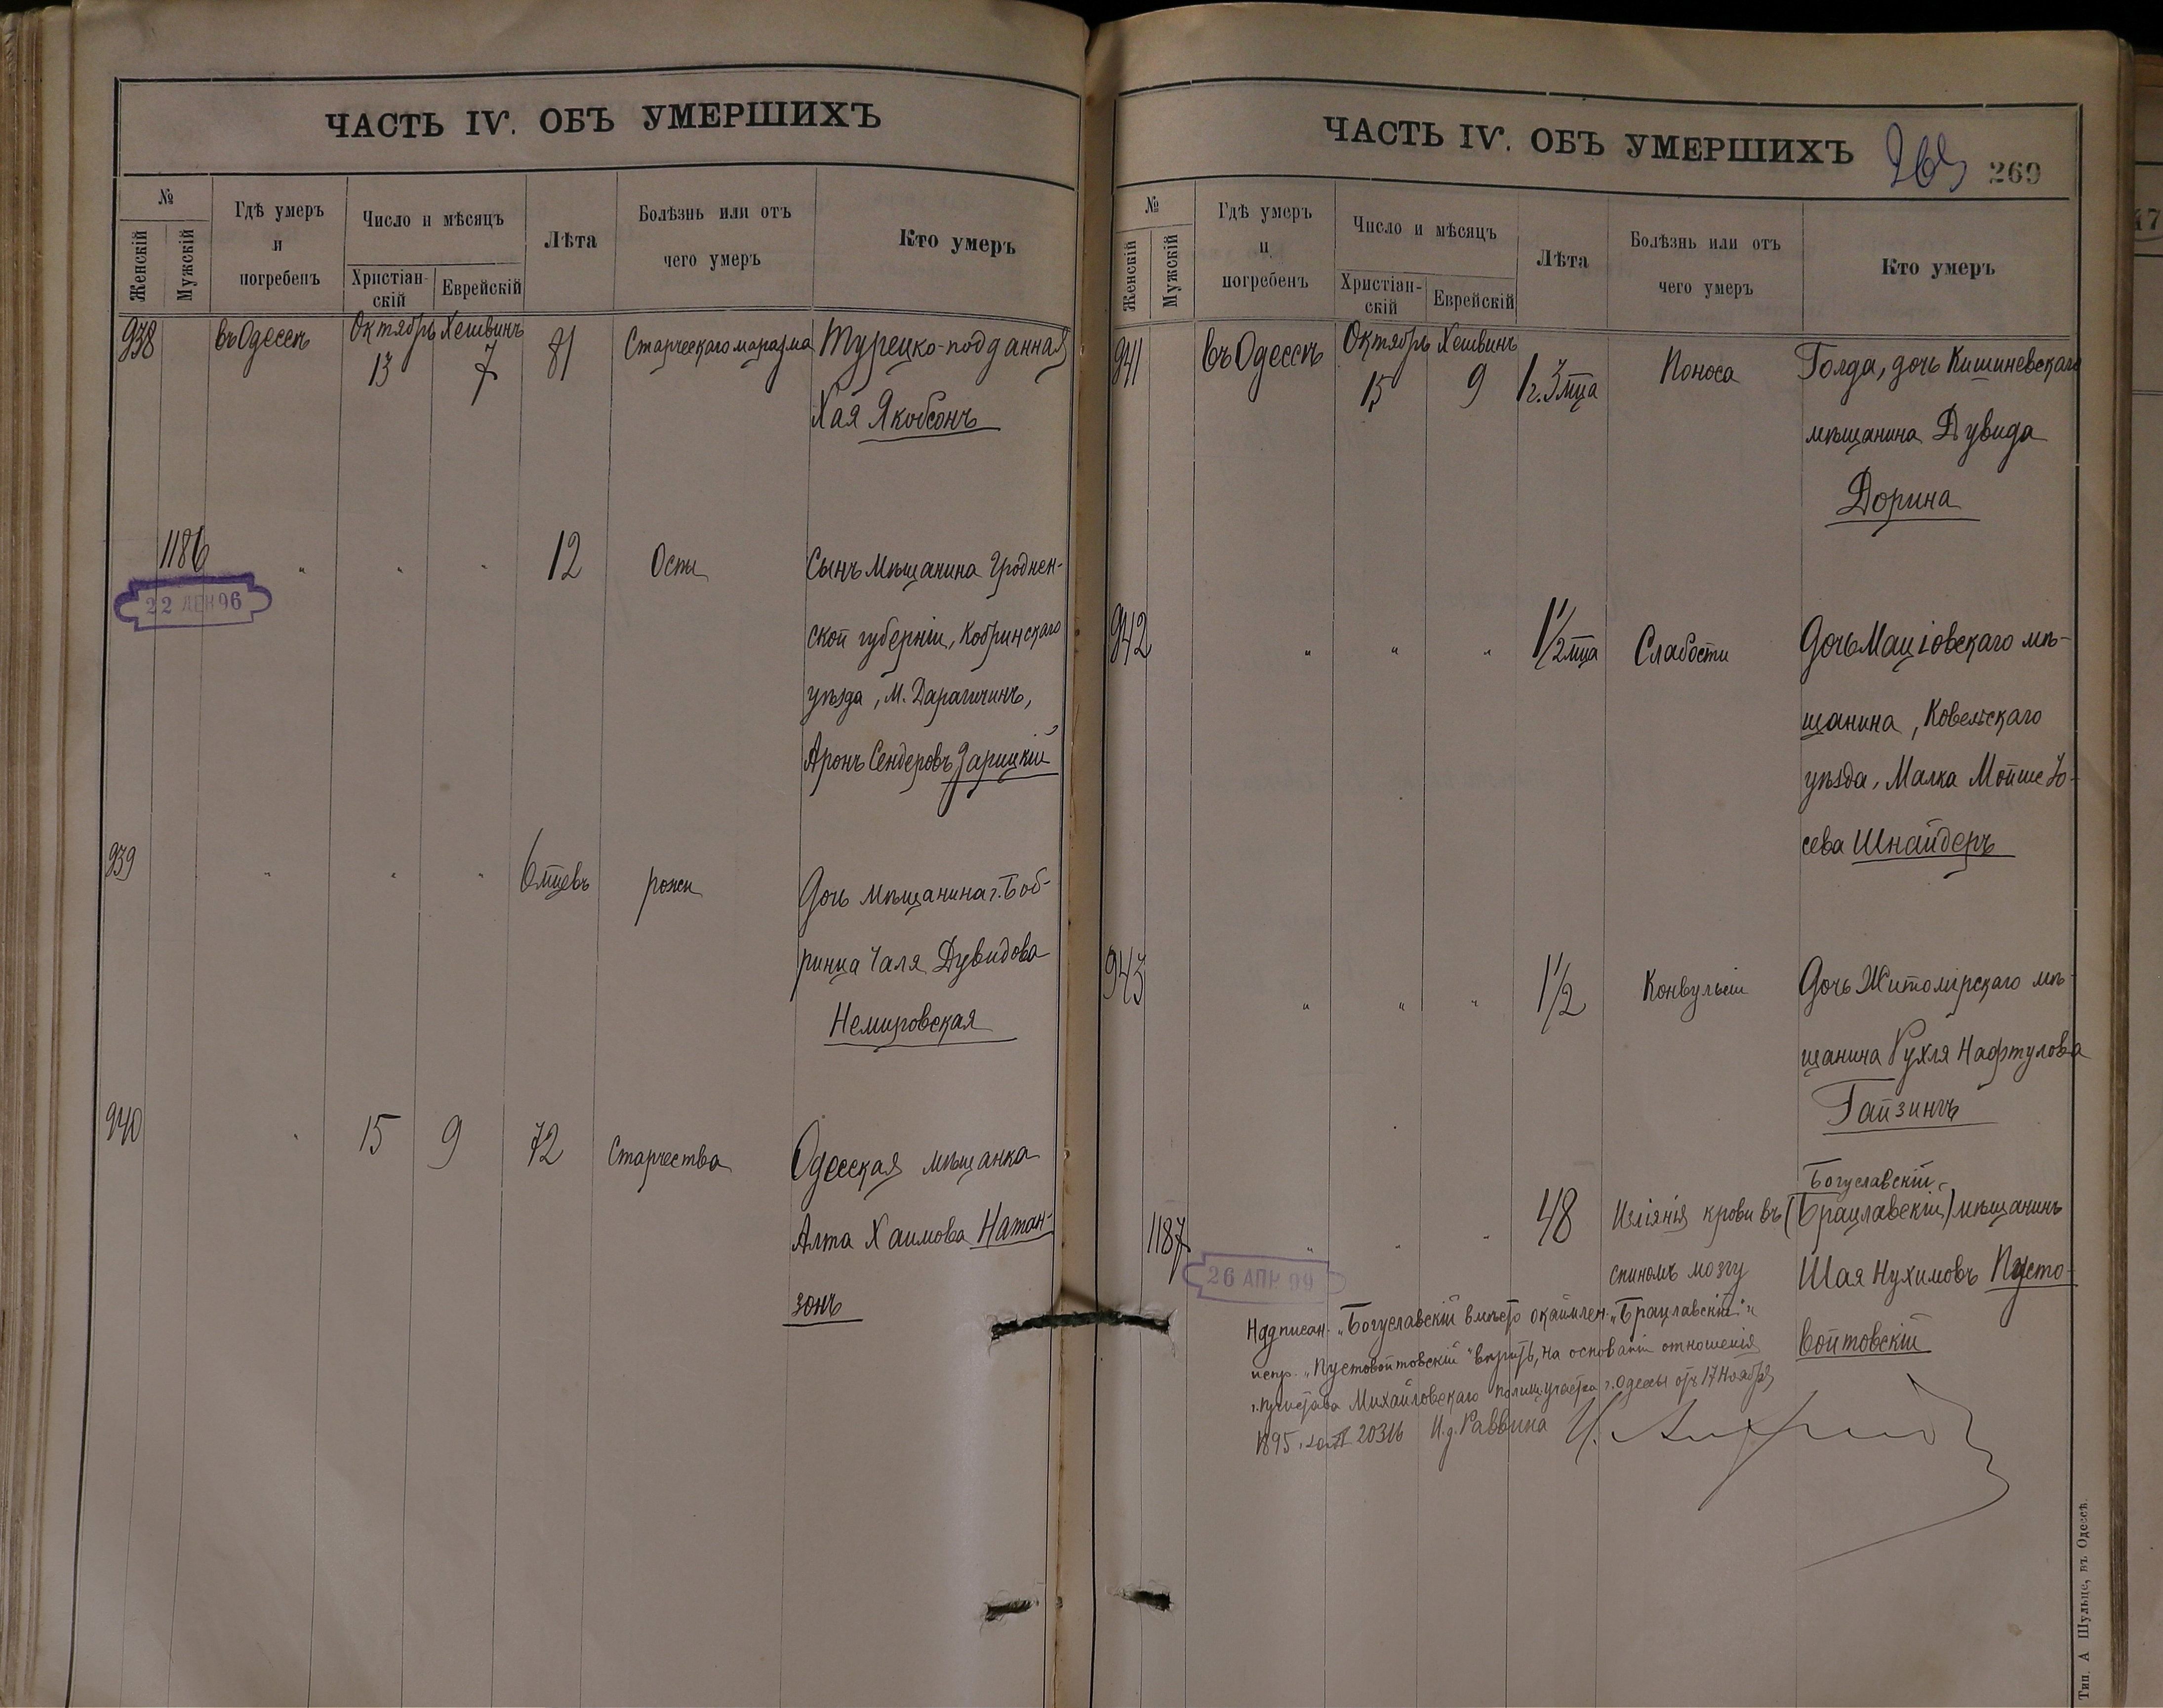 ЧАСТЬ IV. ОБЪ УМЕРШИХЪ
№
Женскій
Мужскій
Гдѣ умеръ
и
погребенъ
Число и мѣсяцъ
Христіан-
скій
Еврейскій
Лѣта
Болѣзнь или отъ
чего умеръ
Кто умеръ
938 въ Одессѣ Октябрь Хешвинъ 81 Старческаго маразма Турецко-подданная
13 7
Хая Якобсонъ
1186 " " " 12 Оспы Сынъ мѣщанина Гроднен-
22 ДЕК 96
ской губерніи, Кобринскаго
уѣзда, М. Дарагичинъ,
Аронъ Сендеровъ Зарицкій
939 " " " 6 мцевъ рожи Дочь мѣщанина г. Боб-
ринца Чаля Дувидова
Немировская
940 " 15 9 72 Старчества Одесская мѣщанка
Алта Хаимова Натан-
зонъ
ЧАСТЬ IV. ОБЪ УМЕРШИХЪ
269
269
№
Женскій
Мужскій
Гдѣ умеръ
и
погребенъ
Число и мѣсяцъ
Христіан-
скій
Еврейскій
Лѣта
Болѣзнь или отъ
чего умеръ
Кто умеръ
941 въ Одессѣ Октябрь Хешвинъ 1 г. 3 мца Поноса Голда, дочь Кишиневскаго
15 9
мѣщанина Дувида
Дорина
942 " " " 1 1/2 мца Слабости Дочь Маціовскаго мѣ-
щанина, Ковельскаго
уѣзда, Малка Мойше Іо-
сева Шнайдеръ
943 " " " 1 1/2 Конвульсіи Дочь Житомірскаго мѣ-
щанина Рухля Нафтулова
Гайзингъ
Богуславскій
1187 " " " 48 Изліянія крови въ (Брацлавскій) мѣщанинъ
26 АПР 99
спиномъ мозгу Шая Нухимовъ Пусто-
войтовскій
Надписан. "Богуславскій вмѣсто окаймлен. "Брацлавскій" и
испр. "Пустовойтовскій" вѣрить, на основаніи отношенія
г. Пристава Михайловскаго полиц. участка г. Одессы отъ 17 Ноября
1895 г. за № 20316 И. д. Раввина
Тип. А Шульце, въ Одессѣ.